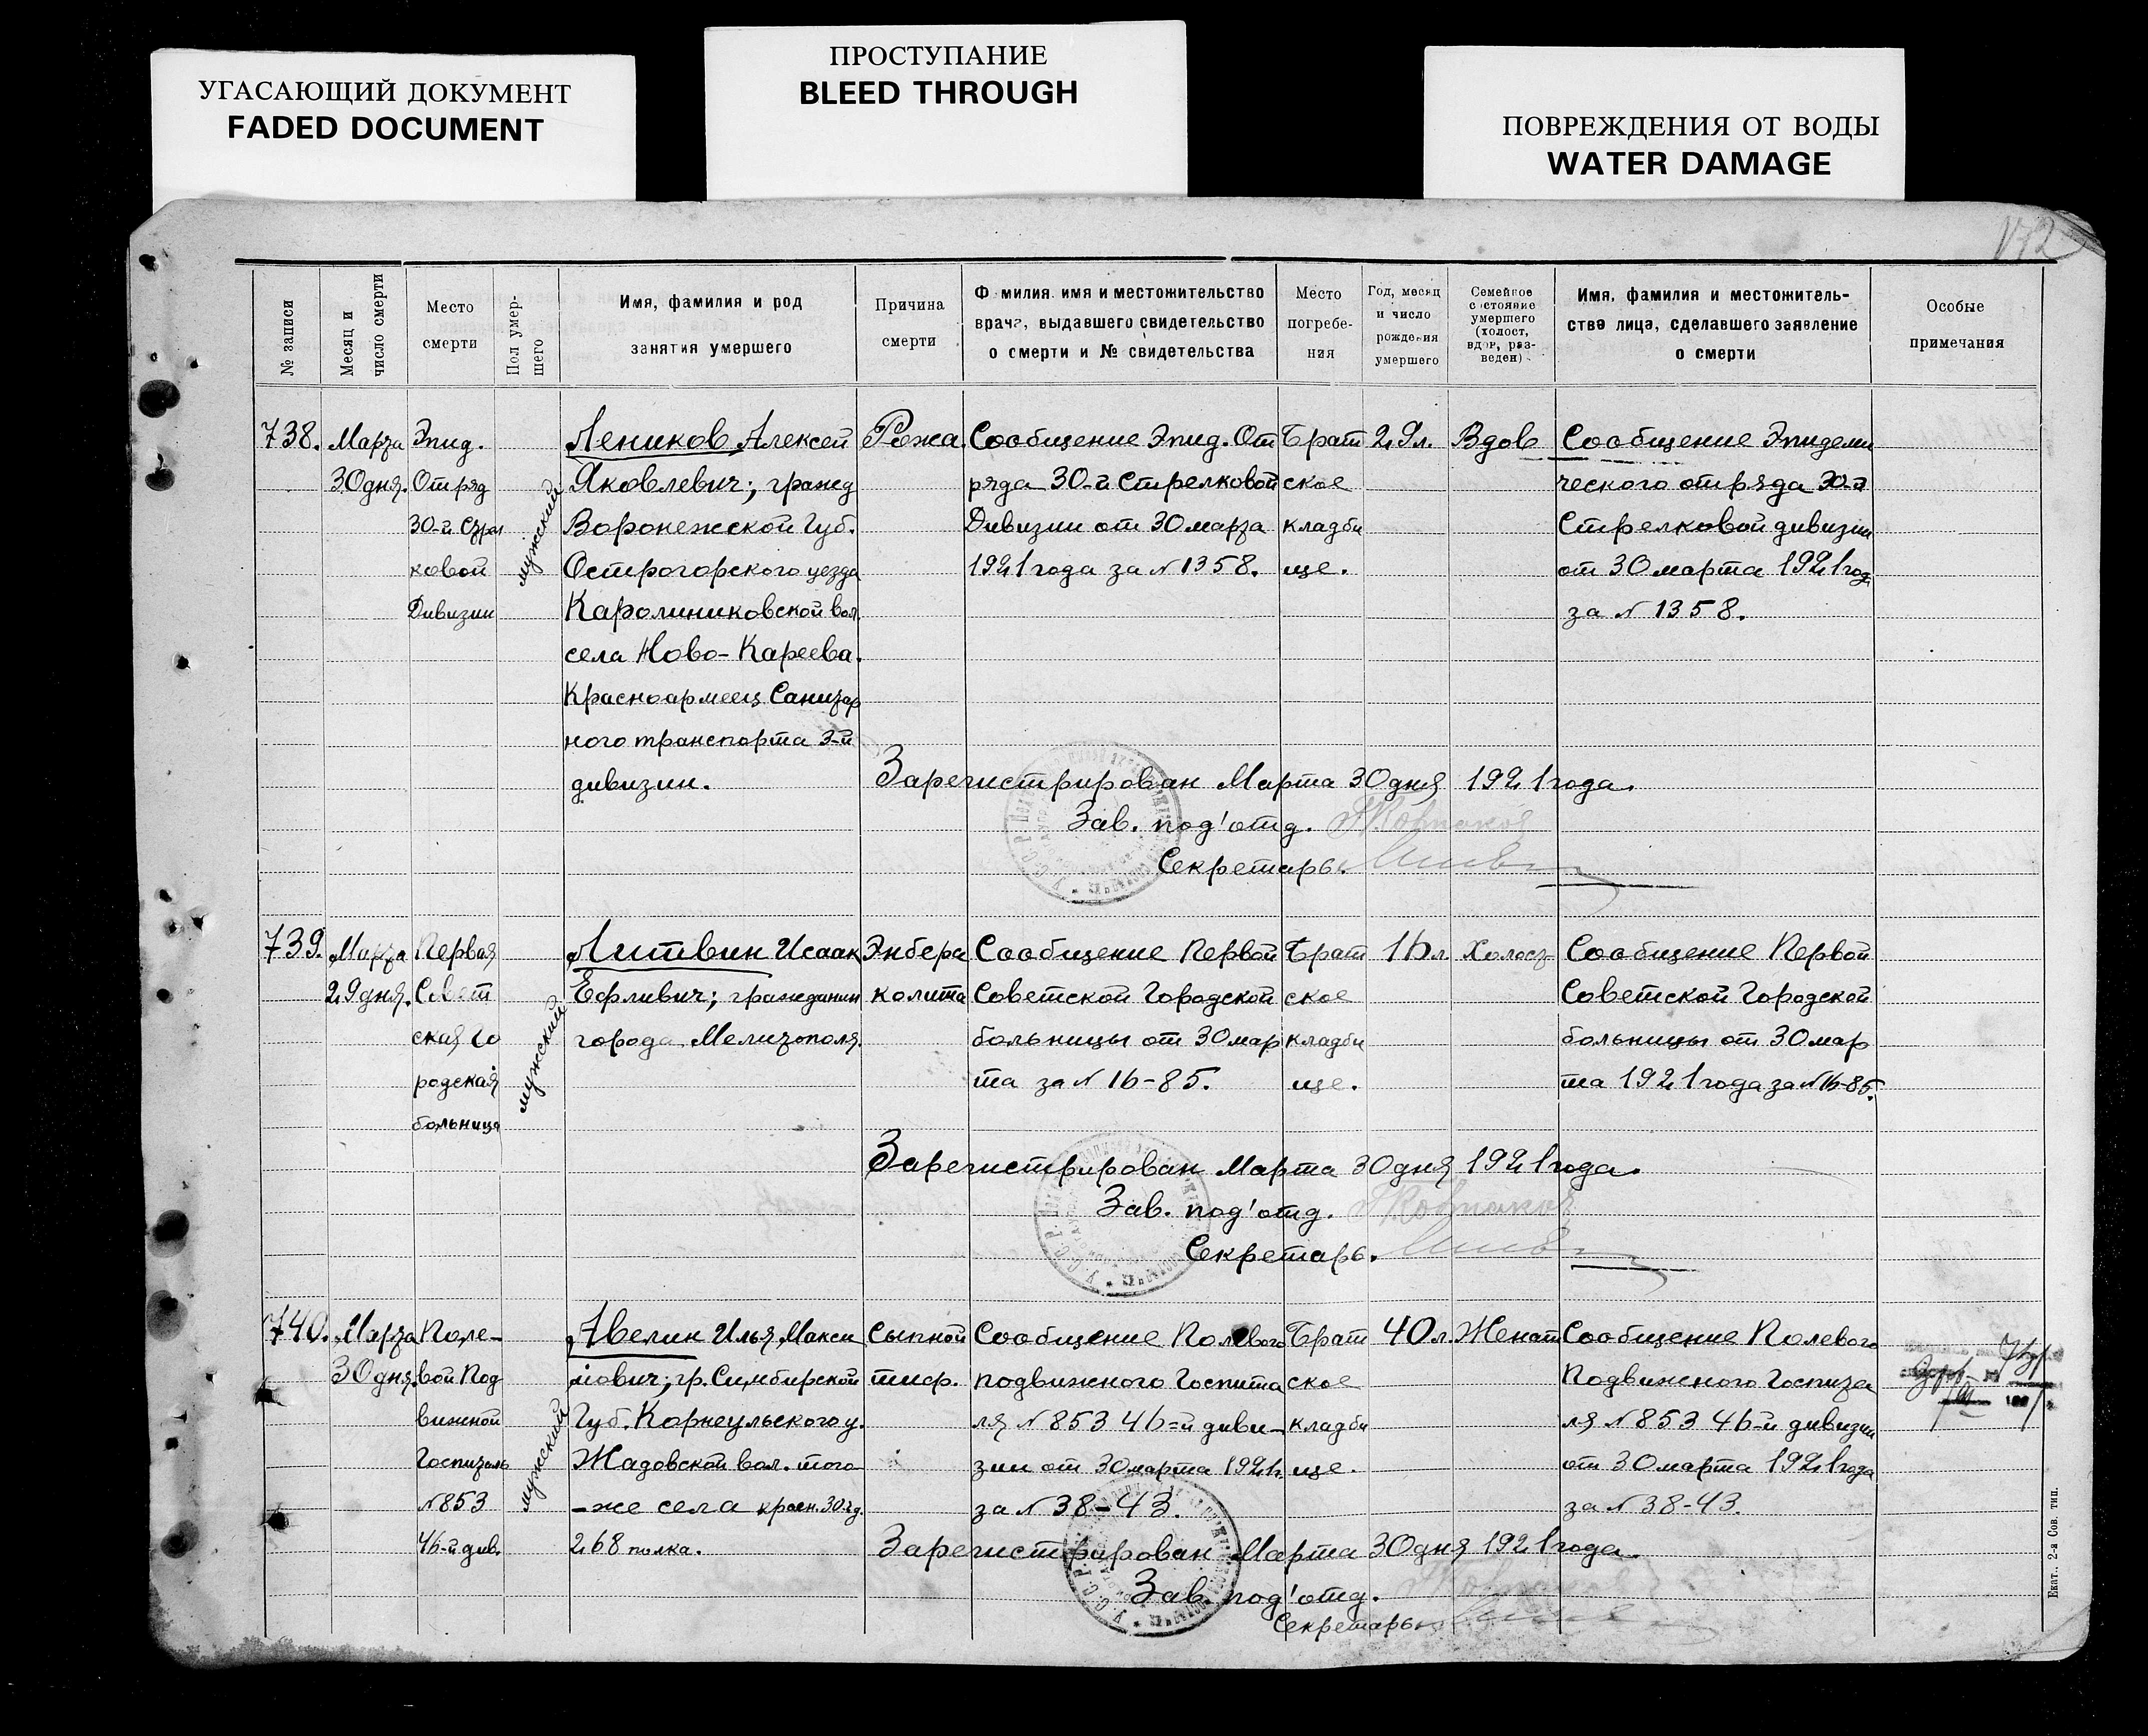 УГАСАЮЩИЙ ДОКУМЕНТ
FADED DOCUMENT
ПРОСТУПАНИЕ
BLEED THROUGH
ПОВРЕЖДЕНИЯ ОТ ВОДЫ
WATER DAMAGE
№ записи
Месяц и
число смерти
Место
смерти
Пол умер-
шего
Имя, фамилия и род
занятия умершего
Причина
смерти
Ф милия. имя и местожительство
врача, выдавшего свидетельство
о смерти и № свидетельства
Место
погребе-
ния
Год, месяц
и число
рождения
умершего
Семейное
состояние
умершего
(холост,
вдов, раз-
веден)
Имя, фамилия и местожитель-
ства лица, сделавшего заявление
о смерти
Особые
примечания
738.
Марта
30 дня.
Эпид.
Отряд
30-й Стрел
ковой
Дивизии
мужской
Леников Алексей
Яковлевич; гражд
Воронежской Губ.
Острогорского уезда
Каролиниковской вол.
села Ново-Кареева.
Красноармеец Санитар
ного транспорта 3-й
дивизии.
Рожа.
Сообщение Эпид. От
ряда 30-й Стрелковой
Дивизии от 30 марта
1921 года за № 1358.
Брат
ское
кладби
ще.
29 л.
Вдов
Сообщение Эпидеми
ческого отряда 30-й
Стрелковой дивизии
от 30 марта 1921 год
за № 1358.
Зарегистрирован Марта 30 дня 1921 года.
Зав. под'отд.
Секретарь.
739.
Марта
29 дня.
Первая
Совет
ская Го
родская
больница
мужской
Литвин Исаак
Ефливич; гражданин
города Мелитополя.
Энтеро
колита
Сообщение Первой
Советской Городской
больницы от 30 мар
та за № 16-85.
Брат
ское
кладби
ще.
16 л.
Холост
Сообщение Первой
Советской Городской
больницы от 30 мар
та 1921 года за № 16-85.
Зарегистрирован Марта 30 дня 1921 года.
Зав. под'отд.
Секретарь.
740.
Марта
30 дня.
Поле-
вой Под
вижной
Госпиталь
№ 853
46-й див.
мужской
Авелин Илья Макси
мович; гр. Симбирской
Губ. Корнеульского у.
Жадовской вол. того
-же села красн. 30-й д.
268 полка.
Сыпной
тиф.
Сообщение Полевого
подвижного Госпита
ля № 853 46-й диви-
зии от 30 марта 1921 г.
за № 38-43.
Брат
ское
кладби
ще.
40 л.
Женат
Сообщение Полевого
Подвижного Госпита
ля № 853 46-й дивизии
от 30 марта 1921 года
за № 38-43.
Зарегистрирован Марта 30 дня 1921 года.
Зав. под'отд.
Секретарь.
Екат., 2-а Сов. тип.